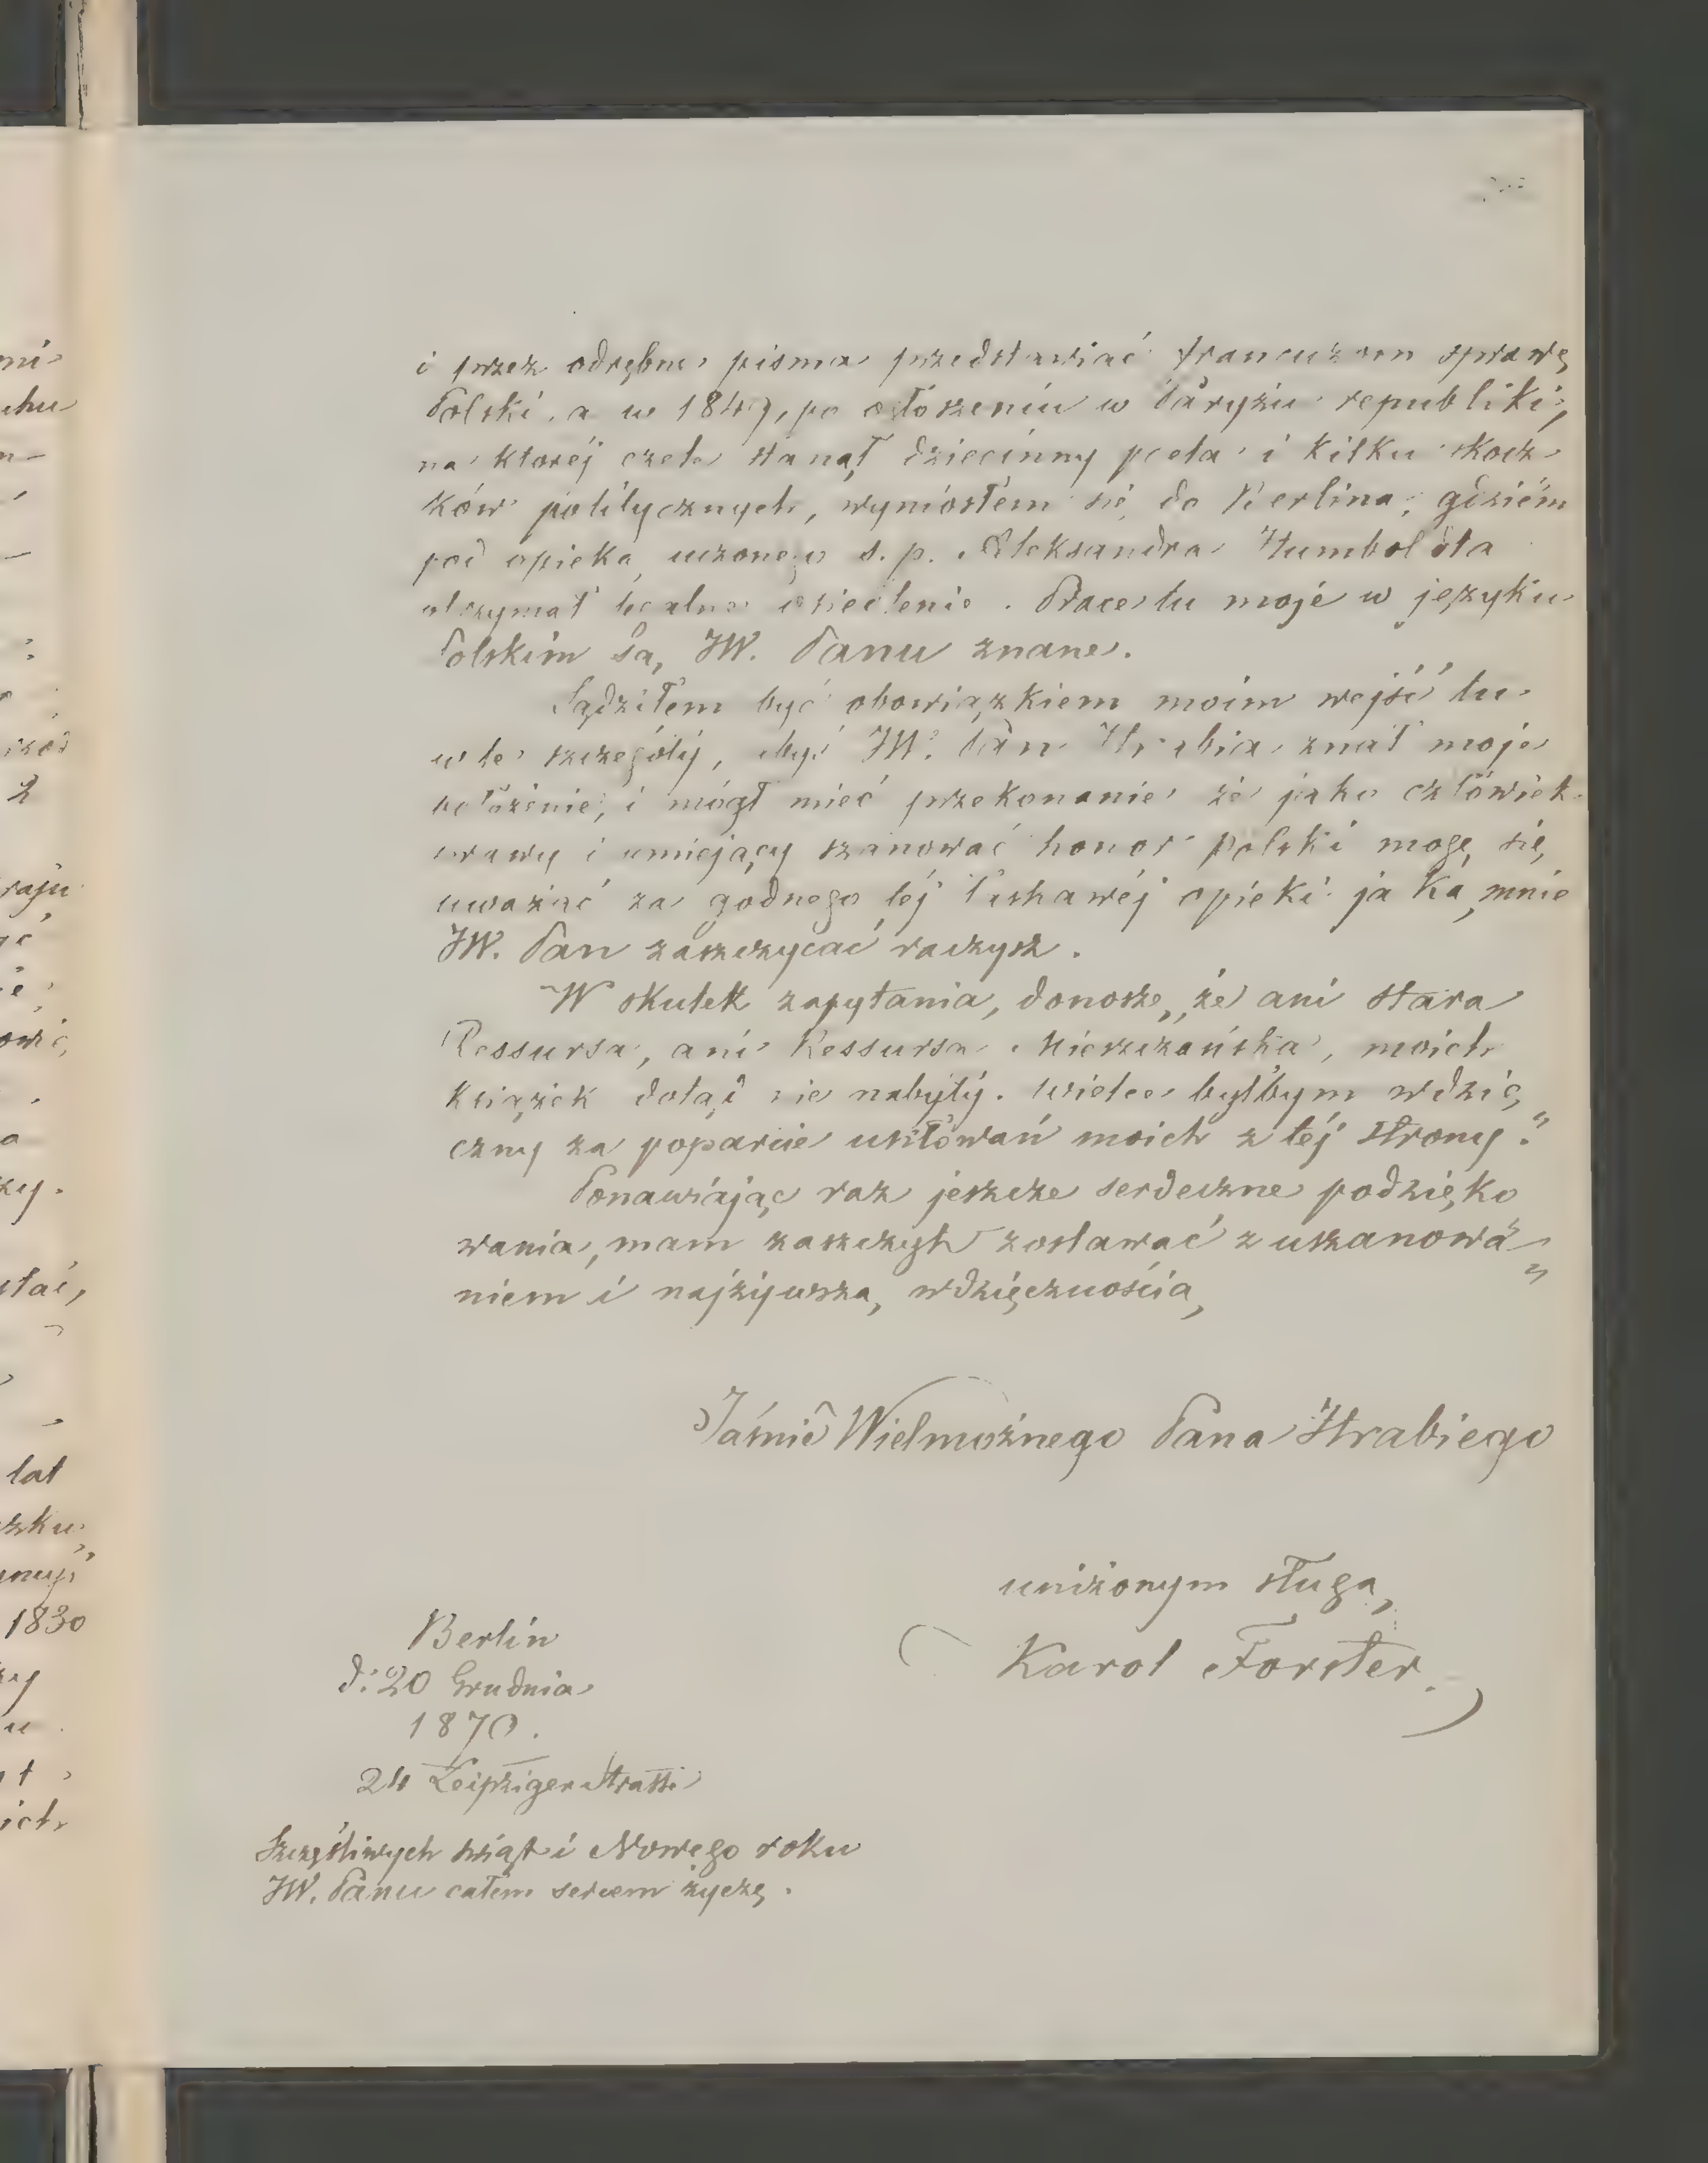 i przez odrębne pisma przedstawiać francuzom sprawę
Polski, a w 1849, po ogłoszeniu w Paryżu republiki,
na któréj czele stanął dziecinny poeta i kilku skocz
ków politycznych, wyniosłem się do Berlina, gdziem
pod opieką uczonego ś. p. Aleksandra Humboldta
otrzymał legalne osiedlenie. Prace tu moje w języku
Polskim są JW. Panu znane.
Sądziłem być obowiązkiem moim wejść tu
w te szczegóły, abyś JW. Pan Hrabia znał moje
położenie, i mógł mieć przekonanie że jako człowiek
prawy i umiejący szanować honor polski mogę się
uważać za godnego téj łaskawéj opieki jaką mnie
JW. Pan zaszczycać raczysz.
W skutek zapytania, donoszę, że ani stara
Ressursa, ani Ressursa Mieszczańska, moich
książek dotąd nie nabyły. Wielce byłbym wdzię
czny za poparcie usiłowań moich z téj strony.
Ponawiając raz jeszcze serdeczne podzięko
wania, mam zaszczyt zostawać z uszanowa
niem i najżywszą wdzięcznością
Jaśnie Wielmożnego Pana Hrabiego
uniżonym sługą
Karol Forster.
Berlin
d: 20 Grudnia
1870.
24 Leipziger Strasse
Szczęśliwych świąt i Nowego roku
JW. Panu całem sercem życzę.